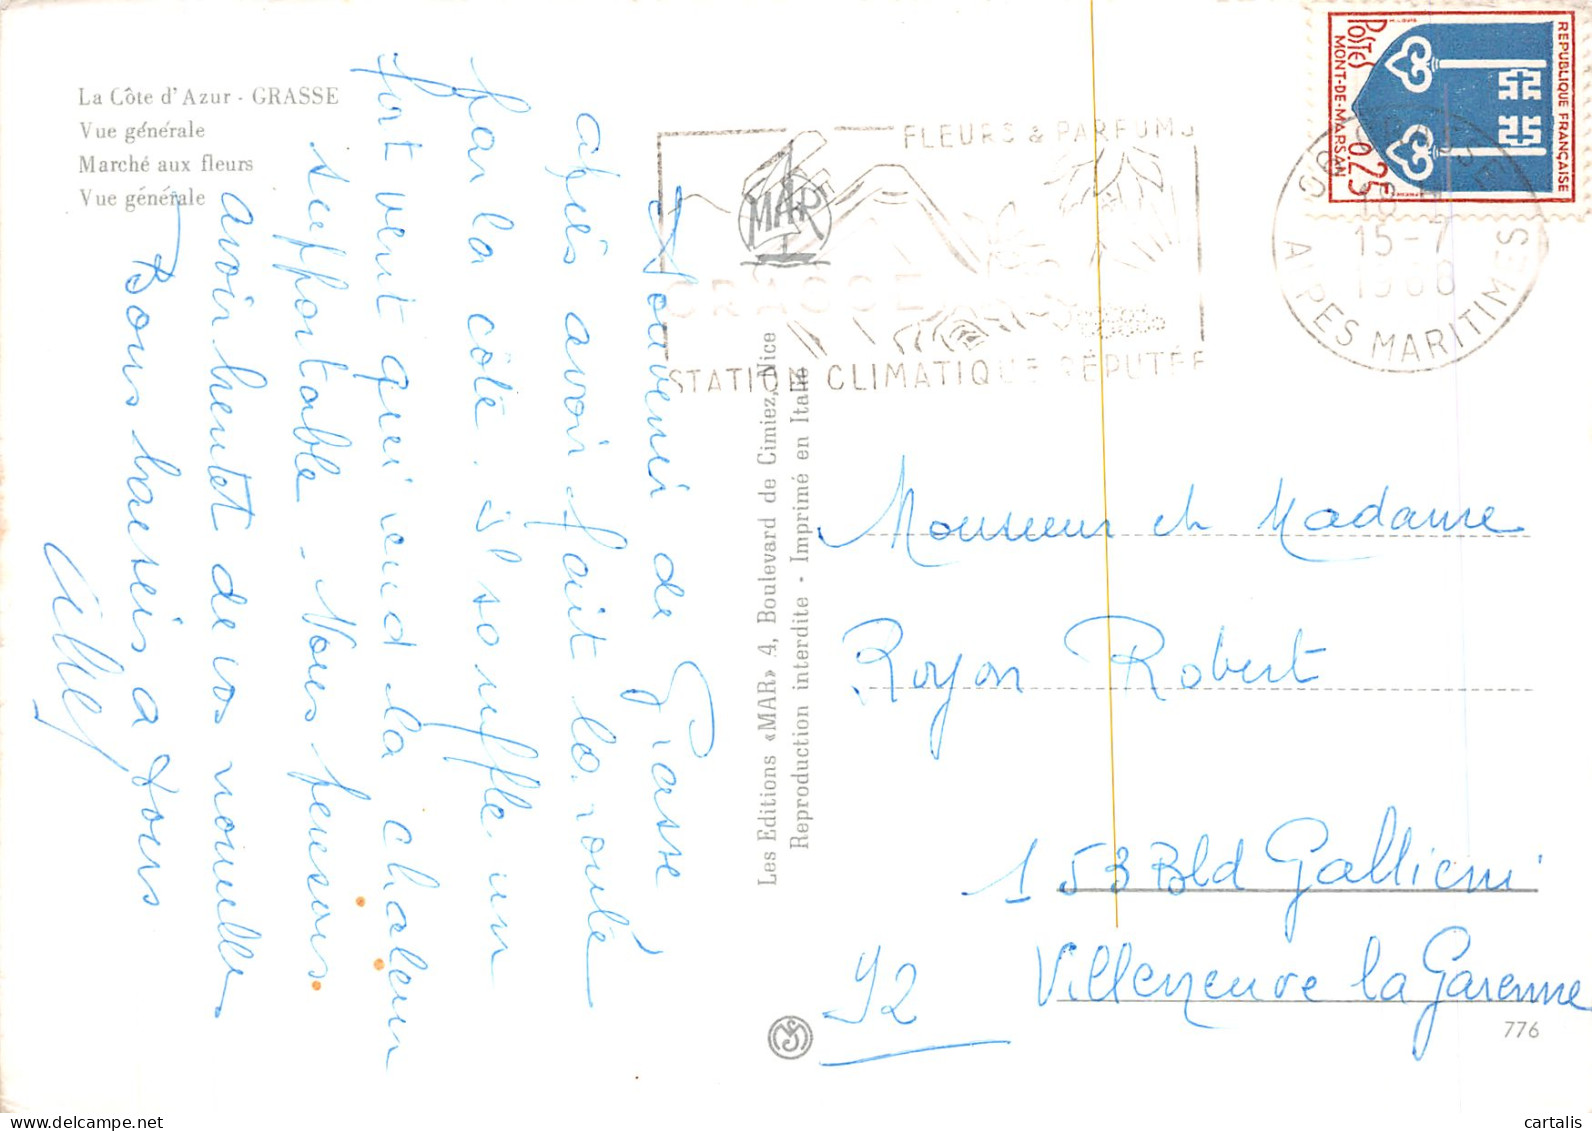 La Côte d'Azur - GRASSE
Vue générale
Marché aux fleurs
Vue générale
Souvenir de Grasse
après avoir fait la route
par la côte. il souffle un
fort vent qui rend la chaleur
supportable. Nous pensons
avoir bientot de vos nouvelles
Bons baisers a tous
Les Editions «MAR» 4, Boulevard de Cimiez, Nice
Reproduction interdite - Imprimé en Italie
MAR
FLEURS & PARFUMS
GRASSE
STATION CLIMATIQUE RÉPUTÉE
15-7
1968
ALPES MARITIMES
REPUBLIQUE FRANÇAISE
POSTES 0,25
MONT-DE-MARSAN
Monsieur et Madame
Royon Robert
153 Bld Gallieni
92 Villeneuve la Garenne
776